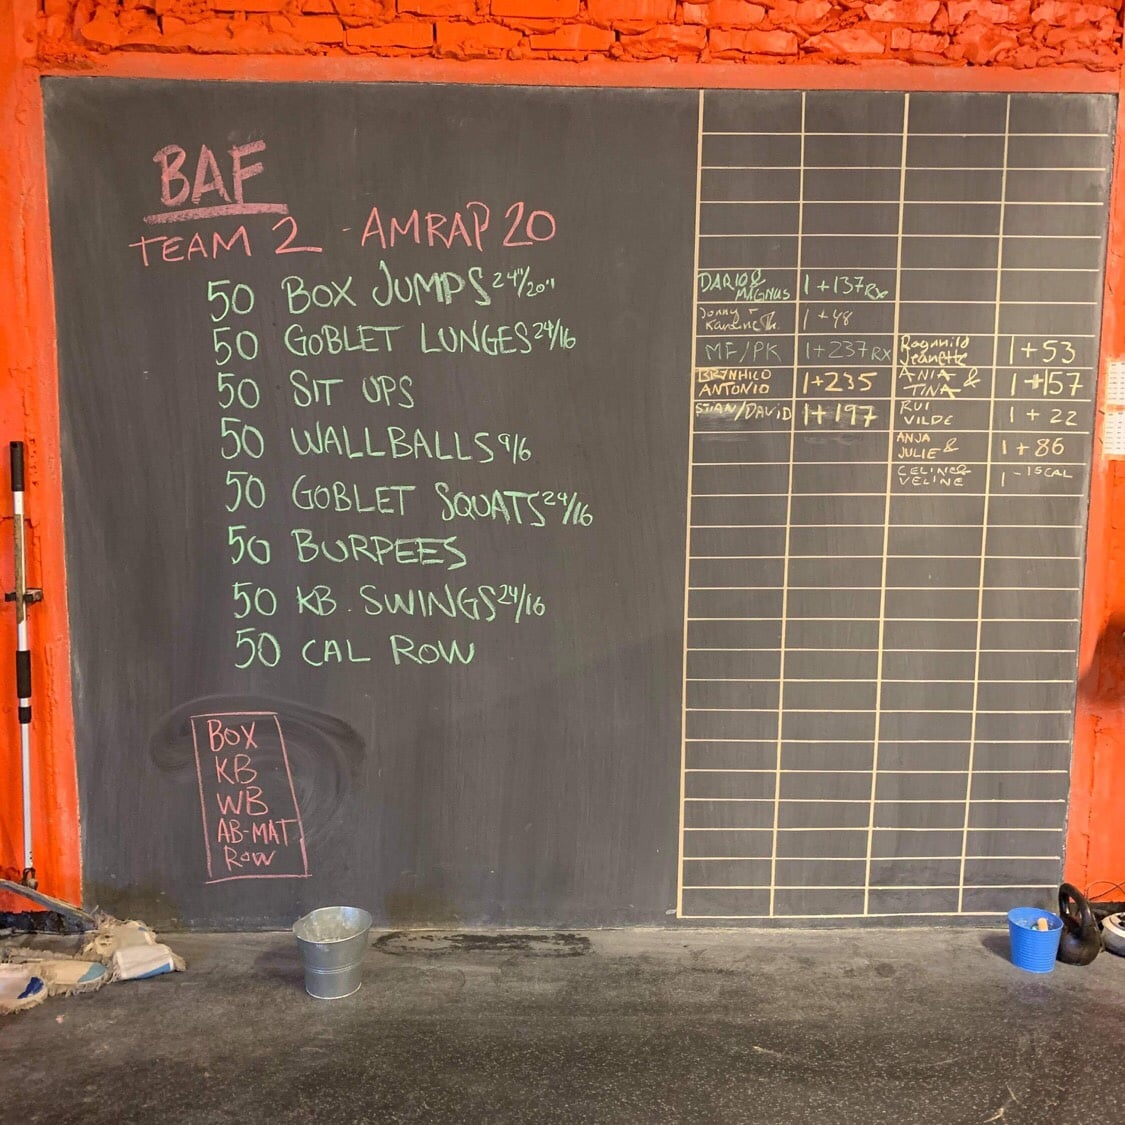 BAF
TEAM 2 - AMRAP 20
50 BOX JUMPS 24"/20"
50 GOBLET LUNGES 24/16
50 SIT UPS
50 WALLBALLS 9/6
50 GOBLET SQUATS 24/16
50 BURPEES
50 KB. SWINGS 24/16
50 CAL ROW
BOX
KB
WB
AB-MAT
ROW
DARIO &
MAGNUS 1+137 Rx
1+48
MF/PK 1+237 RX
BRYNHILD
ANTONIO 1+235
STIAN/DAVID 1+197
Ragnhild
Jeanette 1+53
ANIA &
TINA 1+157
RUI
VILDE 1+22
ANJA &
JULIE 1+86
CELINE &
VELINE 1 -15 CAL